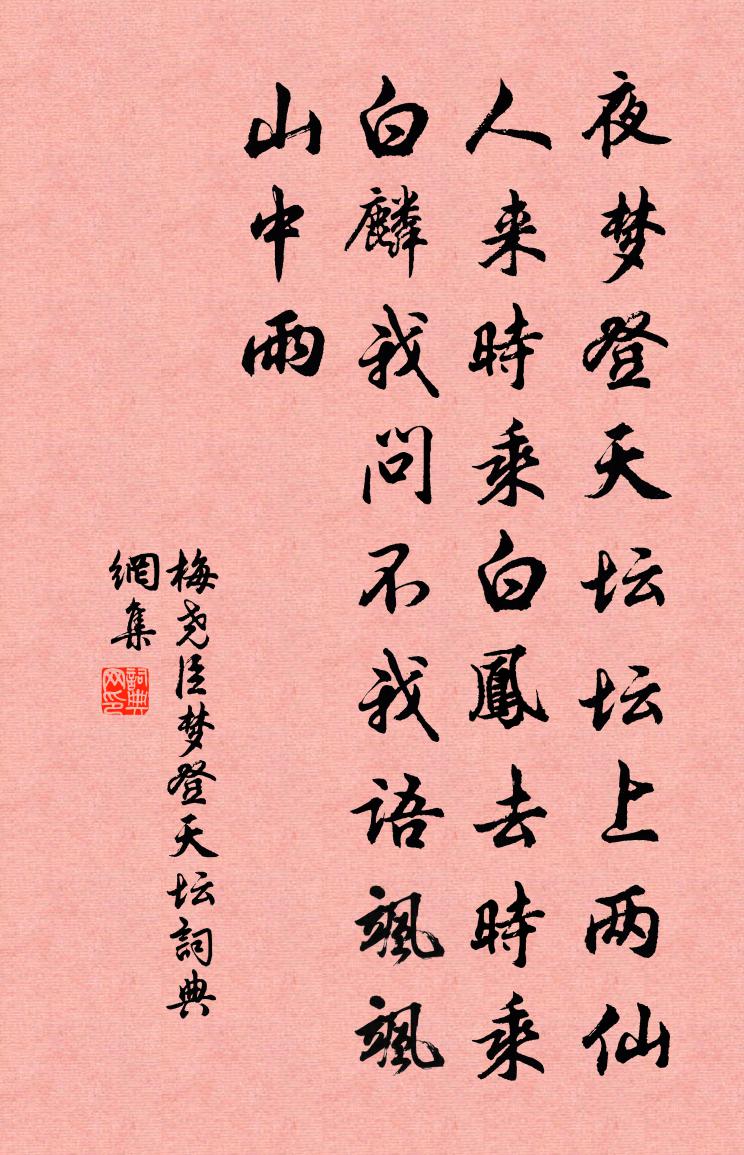 夜梦登天坛坛上两仙
人来時乘白鳳去時乘
白麟我问不我语飒飒
山中雨
梅尧臣梦登天坛詞典
網集
詞典
网印